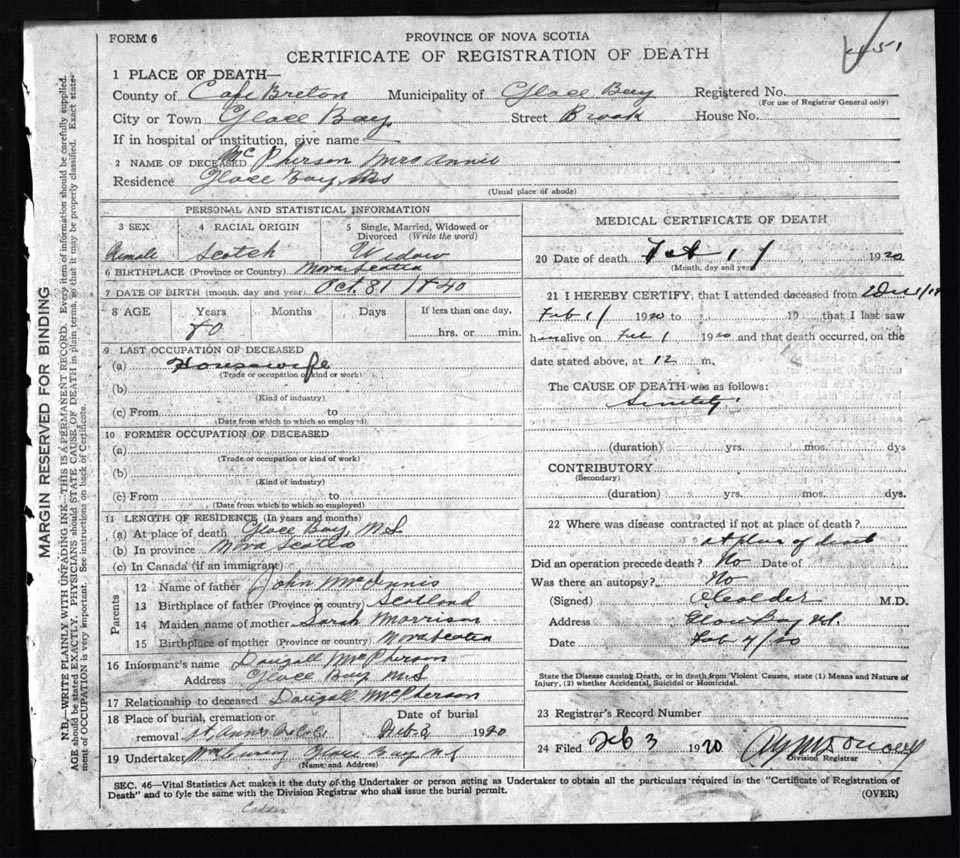 FORM 6
PROVINCE OF NOVA SCOTIA
CERTIFICATE OF REGISTRATION OF DEATH
51
1 PLACE OF DEATH—
County of Cape Breton Municipality of Glace Bay Registered No.
(For use of Registrar General only)
City or Town Glace Bay Street Brook House No.
If in hospital or institution, give name
2 NAME OF DECEASED McPherson Mrs Annie
Residence Glace Bay, NS
(Usual place of abode)
PERSONAL AND STATISTICAL INFORMATION
3 SEX 4 RACIAL ORIGIN 5 Single, Married, Widowed or Divorced (Write the word)
Female Scotch Widow
6 BIRTHPLACE (Province or Country) Nova Scotia
7 DATE OF BIRTH (month, day and year) Oct. 31 1840
8 AGE Years Months Days If less than one day,
80 hrs. or min.
9 LAST OCCUPATION OF DECEASED
(a) Housewife
(Trade or occupation or kind or work)
(b)
(Kind of industry)
(c) From to
(Date from which to which so employed)
10 FORMER OCCUPATION OF DECEASED
(a)
(Trade or occupation or kind of work)
(b)
(Kind of industry)
(c) From to
(Date from which to which so employed)
11 LENGTH OF RESIDENCE (In years and months)
(a) At place of death Glace Bay, N.S
(b) In province Nova Scotia
(c) In Canada (if an immigrant)
Parents
12 Name of father John McInnis
13 Birthplace of father (Province or country) Scotland
14 Maiden name of mother Sarah Morrison
15 Birthplace of mother (Province or country) Nova Scotia
16 Informant's name Dougall McPherson
Address Glace Bay N.S
17 Relationship to deceased Dougall McPherson
18 Place of burial, cremation or Date of burial
removal St. Anns Feb. 2 1920
19 Undertaker Glace Bay N.S
(Name and Address)
MEDICAL CERTIFICATE OF DEATH
20 Date of death Feb 1 1920
(Month, day and year)
21 I HEREBY CERTIFY, that I attended deceased from
Feb 1/ 1920 to 19 that I last saw
h alive on Feb 1 1920 and that death occurred, on the
date stated above, at 12 m.
The CAUSE OF DEATH was as follows:
Senility
(duration) yrs. mos. dys
CONTRIBUTORY
(Secondary)
(duration) yrs. mos. dys.
22 Where was disease contracted if not at place of death?
at place of death
Did an operation precede death? No Date of
Was there an autopsy? No
(Signed) M.D.
Address Glace Bay N.S.
Date Feb 4/20
State the Disease causing Death, or in death from Violent Causes, state (1) Means and Nature of
Injury, (2) whether Accidental, Suicidal or Homicidal.
23 Registrar's Record Number
24 Filed Feb 3 1920
Division Registrar
SEC. 46—Vital Statistics Act makes it the duty of the Undertaker or person acting as Undertaker to obtain all the particulars required in the "Certificate of Registration of
Death" and to fyle the same with the Division Registrar who shall issue the burial permit. (OVER)
MARGIN RESERVED FOR BINDING
N.B.—WRITE PLAINLY WITH UNFADING INK—THIS IS A PERMANENT RECORD. Every item of information should be carefully supplied.
AGE should be stated EXACTLY. PHYSICIANS should STATE CAUSE OF DEATH in plain terms, so that it may be properly classified. Exact state-
ment of OCCUPATION is very important. See instructions on back of Certificate.